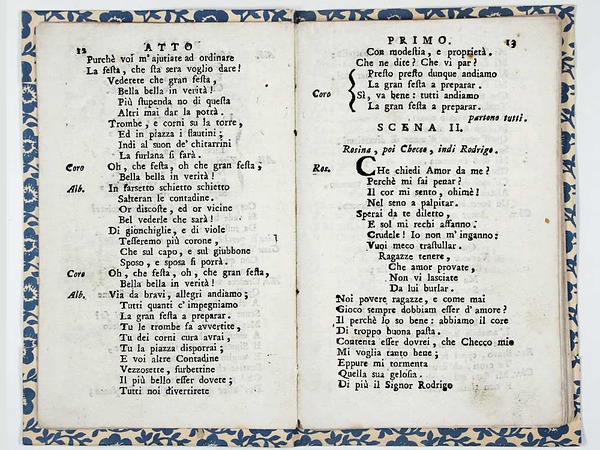 12
ATTO
Purchè voi m'ajutiate ad ordinare
La festa, che sta sera voglio dare!
Vederete che gran festa,
Bella bella in verità!
Più stupenda no di questa
Altri mai dar la potrà.
Trombe, e corni su la torre,
Ed in piazza i flautini;
Indi al suon de' chitarrini
La furlana si farà.
Coro Oh, che festa, oh che gran festa;
Bella bella in verità!
Alb. In farsetto schietto schietto
Salteran le contadine.
Or discoste, ed or vicine
Bel vederle che sarà!
Di gionchiglie, e di viole
Tesseremo più corone,
Che sul capo, e sul giubbone
Sposo, e sposa si porrà.
Coro Oh, che festa, oh, che gran festa,
Bella bella in verità!
Alb. Via da bravi, allegri andiamo;
Tutti quanti c'impegniamo
La gran festa a preparar.
Tu le trombe fa avvertite,
Tu dei corni cura avrai,
Tu la piazza disporrai;
E voi altre Contadine
Vezzosette, furbettine
Il più bello esser dovete;
Tutti noi divertirete
PRIMO.
13
Con modestia, e proprietà.
Che ne dite? Che vi par?
Presto presto dunque andiamo
La gran festa a preparar.
Coro Sì, va bene: tutti andiamo
La gran festa a preparar.
partono tutti.
SCENA II.
Rosina, poi Checco, indi Rodrigo.
Ros. CHe chiedi Amor da me?
Perchè mi fai penar?
Il cor mi sento, ohimè!
Nel seno a palpitar.
Sperai da te diletto,
E sol mi rechi affanno.
Crudele! Io non m'inganno:
Vuoi meco trastullar.
Ragazze tenere,
Che amor provate,
Non vi lasciate
Da lui burlar.
Noi povere ragazze, e come mai
Gioco sempre dobbiam esser d'amore?
Il perchè lo so bene: abbiamo il core
Di troppo buona pasta.
Contenta esser dovrei, che Checco mio
Mi voglia tanto bene;
Eppure mi tormenta
Quella sua gelosia.
Di più il Signor Rodrigo